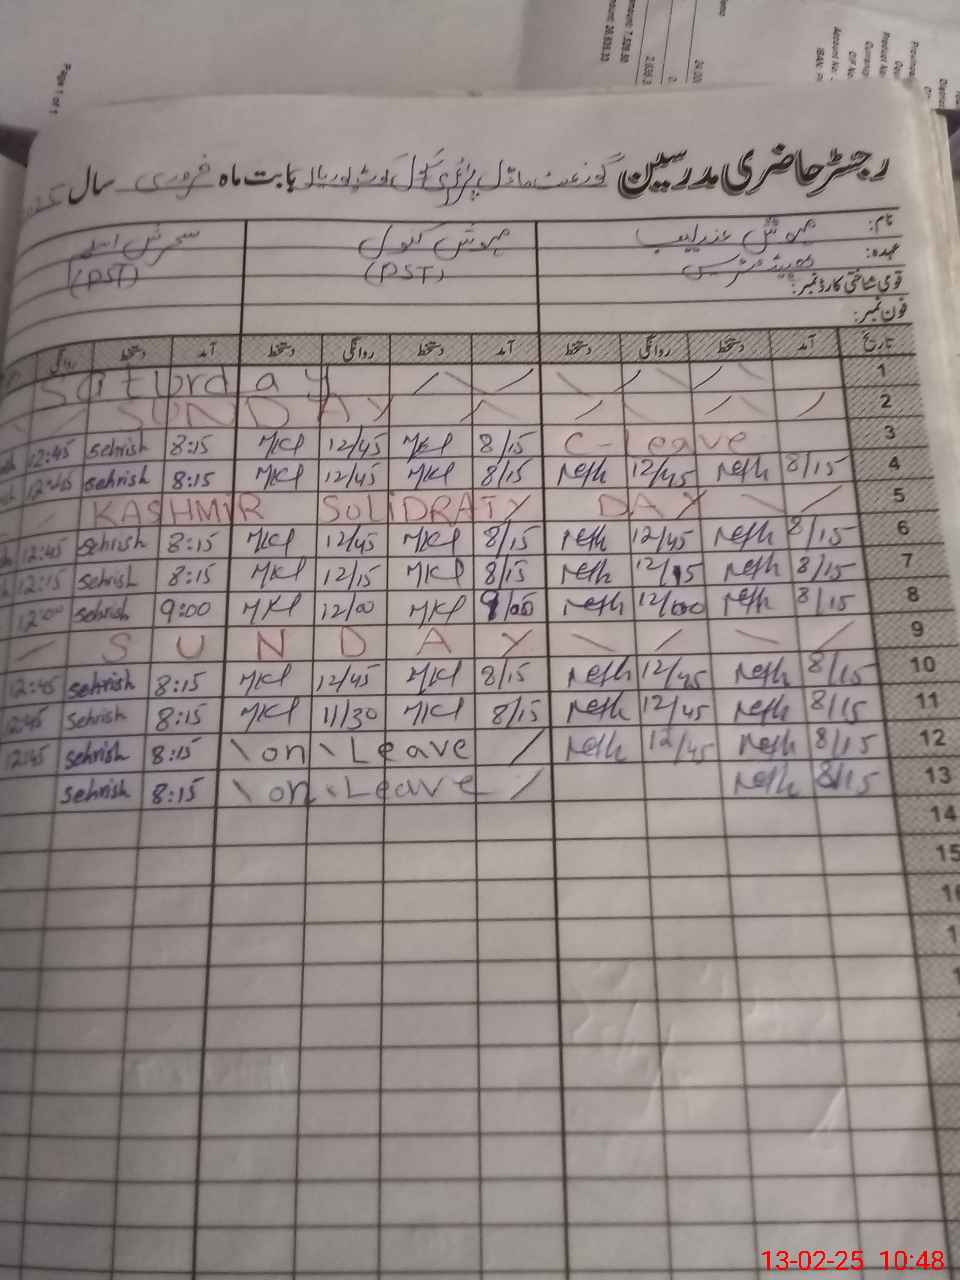 Page 1 of 1
رجسٹر حاضری مدرسین گورنمنٹ ماڈل پرائمری سکول بابت ماہ فروری سال
نام: مہوش عندلیب مہوش کنول سحرش اسلم
عہدہ: ہیڈ مسٹریس (PST) (PST)
قومی شناختی کارڈ نمبر:
فون نمبر:
تاریخ آمد دستخط روانگی دستخط آمد دستخط روانگی دستخط آمد دستخط روانگی
1 Saturday
2 SUNDAY
3 C-Leave 8/15 MKl 12/45 MKl 8:15 sehrish 12:45
4 8/15 Neth 12/45 Neth 8/15 MKl 12/45 MKl 8:15 sehrish 12:45
5 KASHMIR SOLIDRATY DAY
6 8/15 Neth 12/45 Neth 8/15 MKl 12/45 MKl 8:15 sehrish 12:45
7 8/15 Neth 12/15 Neth 8/15 MKl 12/15 MKl 8:15 sehrish 12:15
8 8/15 Neth 12/00 Neth 9/00 MKl 12/00 MKl 9:00 sehrish 12:00
9 SUNDAY
10 8/15 Neth 12/45 Neth 8/15 MKl 12/45 MKl 8:15 sehrish 12:45
11 8/15 Neth 12/45 Neth 8/15 MKl 11/30 MKl 8:15 sehrish 12:45
12 8/15 Neth 12/45 Neth on Leave 8:15 sehrish 12:45
13 8/15 Neth on Leave 8:15 sehrish
14
15
13-02-25 10:48